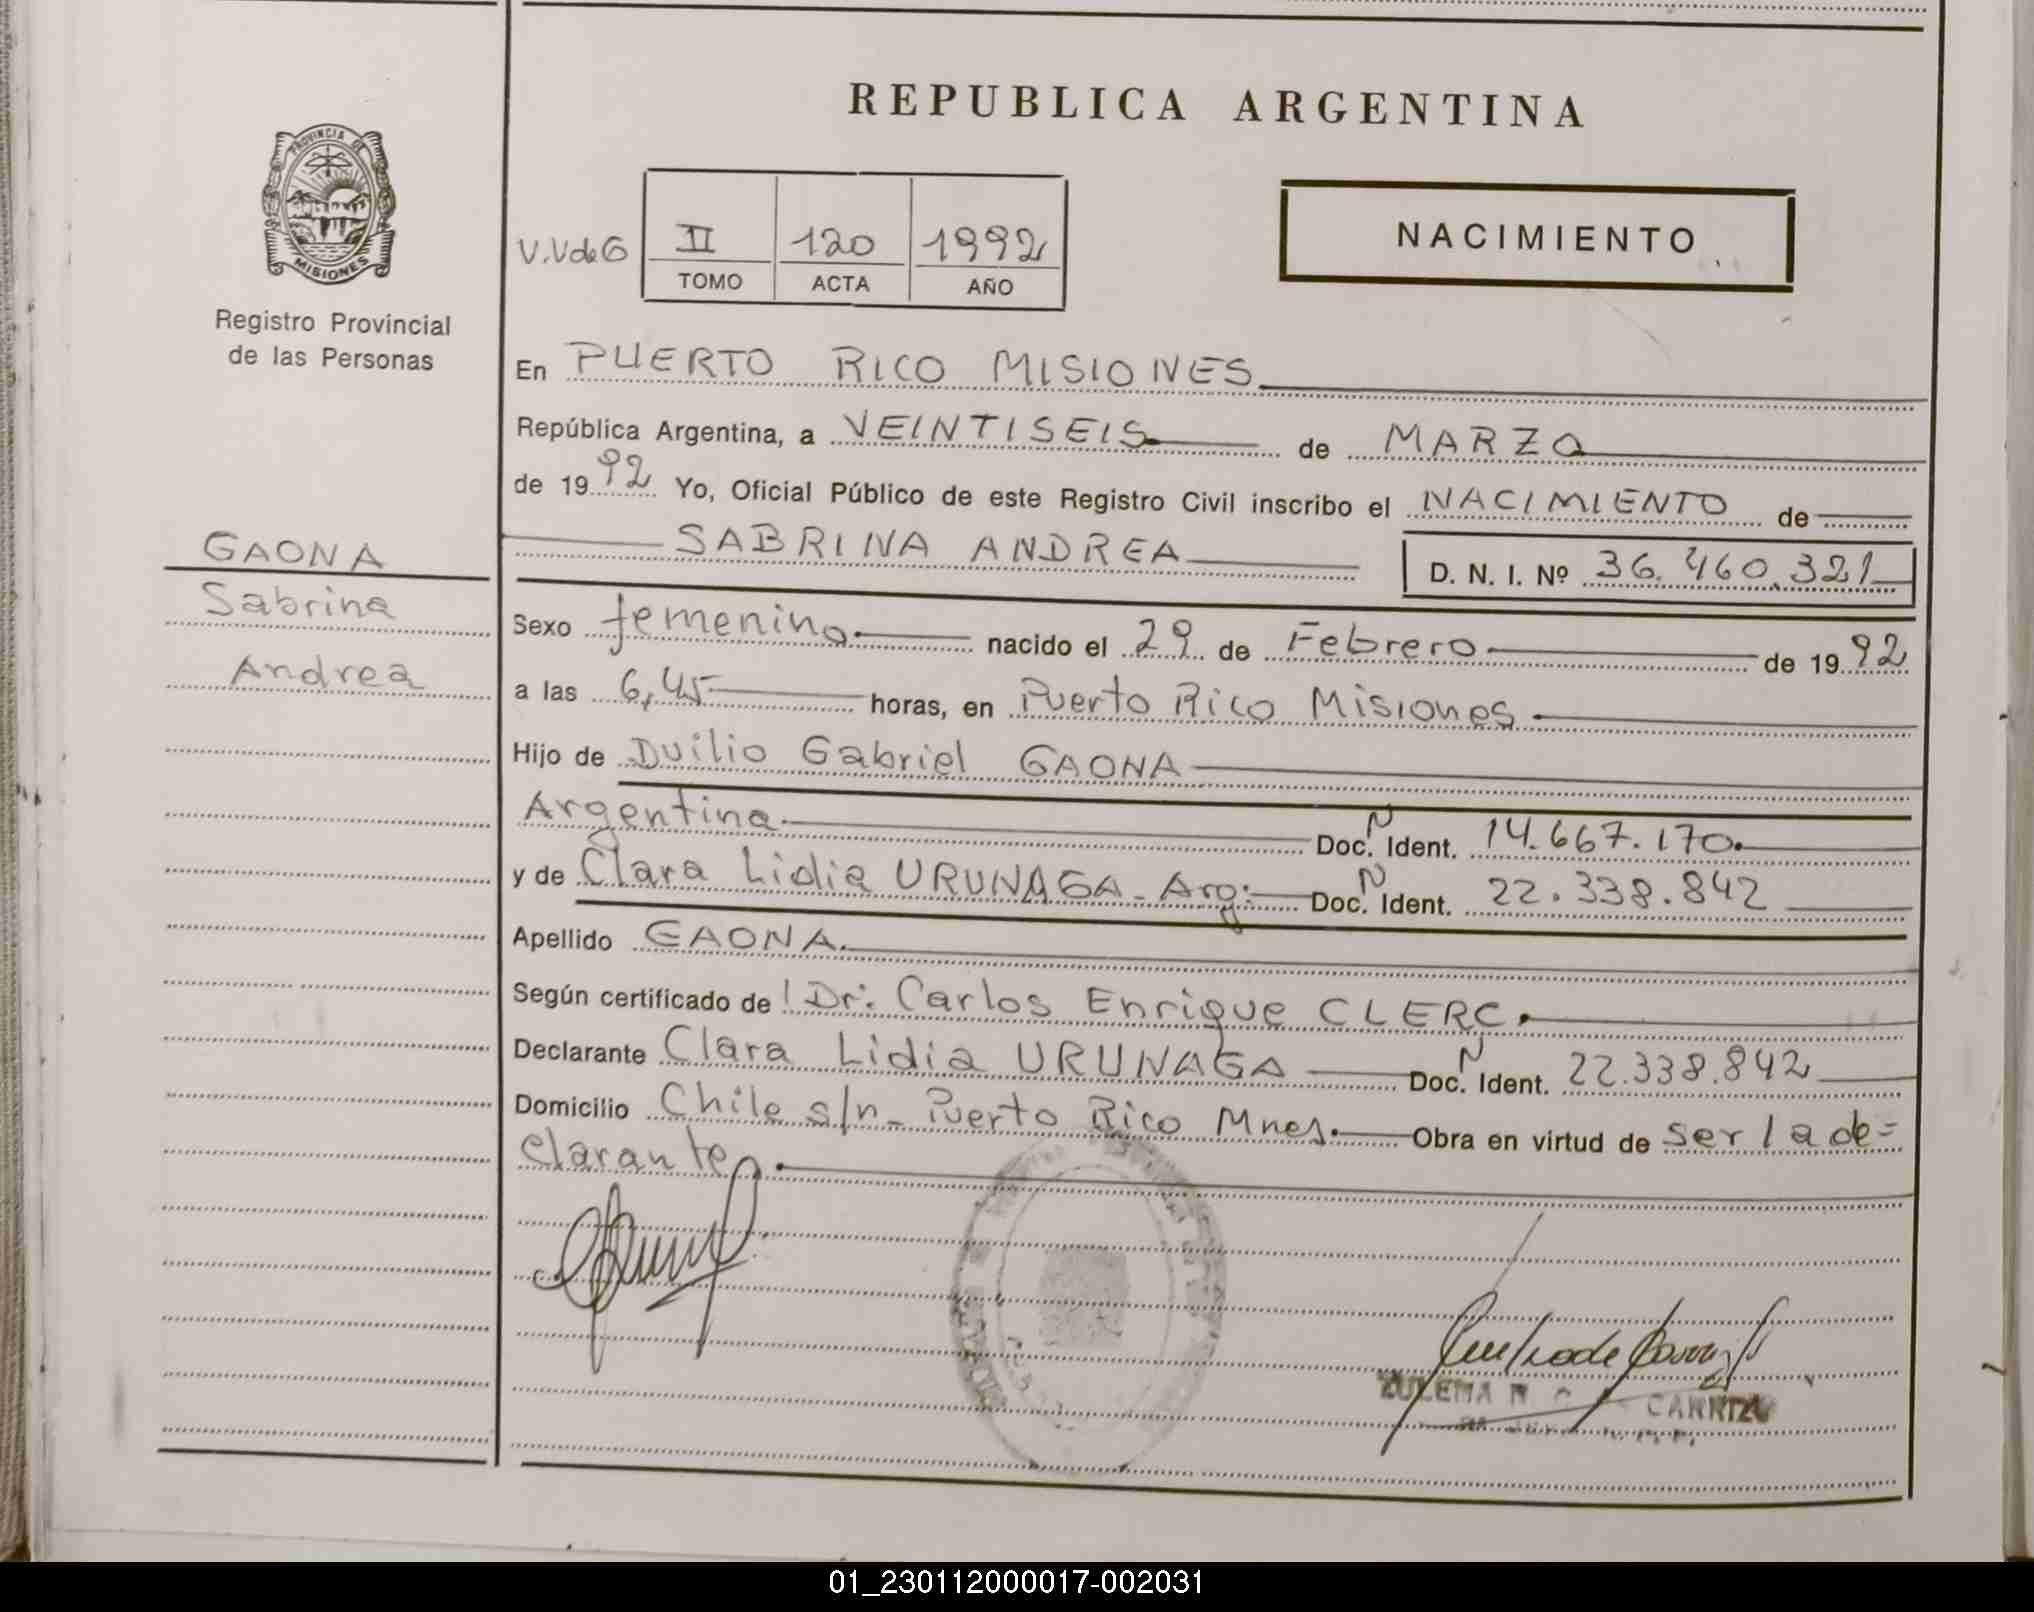 REPUBLICA ARGENTINA
PROVINCIA DE
MISIONES
Registro Provincial
de las Personas
V.VdeG
II 120 1992
TOMO ACTA AÑO
NACIMIENTO
En PUERTO RICO MISIONES
República Argentina, a VEINTISEIS de MARZO
de 1992 Yo, Oficial Público de este Registro Civil inscribo el NACIMIENTO de
SABRINA ANDREA D. N. I. Nº 36.460.321
GAONA
Sabrina
Andrea
Sexo femenino nacido el 29 de Febrero de 1992
a las 6,45 horas, en Puerto Rico Misiones
Hijo de Duilio Gabriel GAONA
Argentina Doc. N Ident. 14.667.170.
y de Clara Lidia URUNAGA - Arg: Doc. N Ident. 22.338.842
Apellido GAONA.
Según certificado de Dr: Carlos Enrique CLERC.
Declarante Clara Lidia URUNAGA Doc. N Ident. 22.338.842
Domicilio Chile s/n - Puerto Rico Mnes. Obra en virtud de ser la de=
clarante.
ZULEMA
01_230112000017-002031